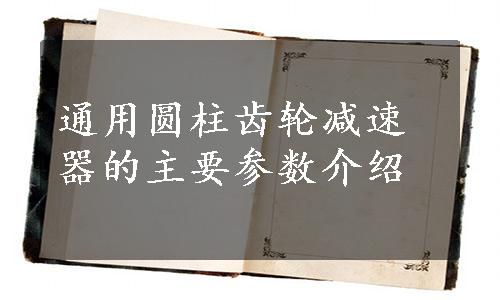 通用圆柱齿轮减速
器的主要参数介绍